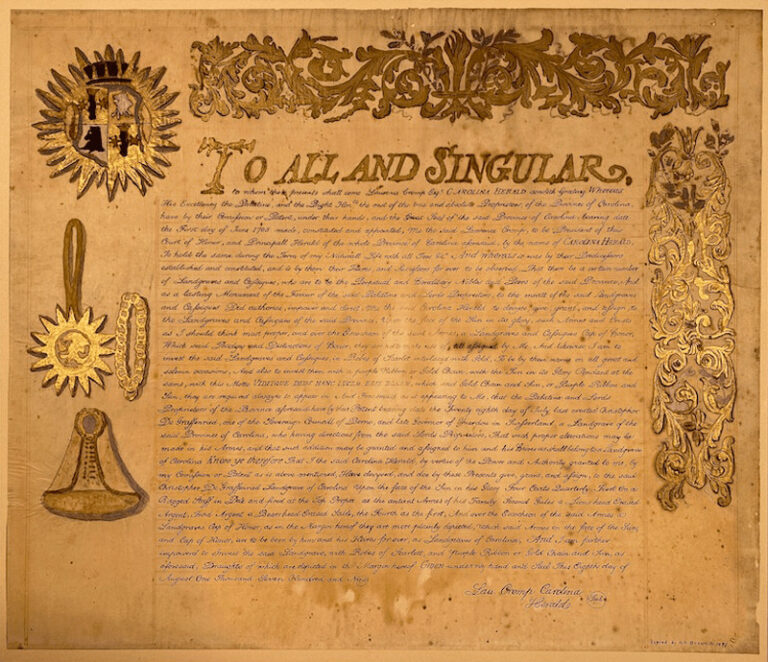 TO ALL AND SINGULAR,
to whom these presents shall come Laurence Cromp Esq. CAROLINA HERALD sendeth Greeting Whereas
His Excellency the Palatine, and the Right Hon. the rest of the true and absolute Proprietors of the Province of Carolina,
have by their Commission or Patent, under their hands, and the Great Seal of the said Province of Carolina bearing date
the First day of June 1705 made, constituted and appointed, Me the said Laurence Cromp, to be President of this
Court of Honor, and Principall Herald of the whole Province of Carolina aforesaid, by the name of CAROLINA HERALD,
To hold the same during the Term of my Naturall Life with all Fees &c And Whereas it was by their Predecessors
established and constituted, and is by them their Heirs, and Assigns for ever to be observed, That there be a certain number
of Landgraves and Cassiques, who are to be the Perpetual and Hereditary Nobles and Peers of the said Province, And
as a lasting Monument of the Honour of the said Palatine and Lords Proprietors, to the merit of the said Landgraves
and Cassiques Did authorise, impower and Me the said Carolina Herald to devise, give, grant, and assign to
the Landgraves and Cassiques of the said Province, Upon the face of the Sun in its glory, such Armes and Crests
as I should think most proper, and over the of the said Armes, a Landgraves and Cassiques Cap of honor,
Which said Badges and Distinctions of honor, they are all assigned by Me, And likewise I am to
invest the said Landgraves and Cassiques, in Robes of Scarlet with Gold, To be by them worn on all great and
solemn occasions, And also to invest them with a purple Ribbon or Gold Chain, with the Sun in its Glory Pendant at the
same, with this Motto which said Gold Chain and Sun, or Purple Ribbon and
Sun, they are required always to appear in And Forasmuch as it appearing to Me, that the Palatine and Lords
Proprietors of the Province aforesaid have by their Patent bearing date the Twenty eighth day of July last created Christopher
De Graffenried, one of the Sovereign Council of Berne, and late Governor of Yverdon in Switzerland, a Landgrave of the
said Province of Carolina, who having directions from the said Lords Proprietors, That such proper alterations may be
made in his Armes, and that such addition may be granted and assigned to him and his Heires as shall belong to a Landgrave
of Carolina Know ye therefore That I the said Carolina Herald, by vertue of the Power and Authority granted to me, by
my Commission or Patent is as above mentioned, Have devised, and do by these Presents give, grant, and assign, to the said
Christopher De Graffenried Landgrave of Carolina Upon the face of the Sun in his Glory Four Coats Quarterly, First Or a
Ragged Staff in Pale and fired at the Top Proper as the antient Armes of his Family,
Argent, Third Argent a Bears head Sable, the Fourth as the first, And over the of the said Armes a
Landgraves Cap of Honor, as in the Margin hereof they are more plainly depicted, which said Armes in the face of the Sun,
and Cap of Honor, are to be born by him and his Heires for ever, as Landgraves of Carolina, And I am further
impowered to invest the said Landgrave, with Robes of Scarlett, and Purple Ribbon or Gold Chain and Sun, as
aforesaid, Draughts of which are depicted in the Margin hereof Given under my hand and Seal This Eighth day of
August One Thousand Seven Hundred and Nine
Lau: Cromp Carolina
Herald